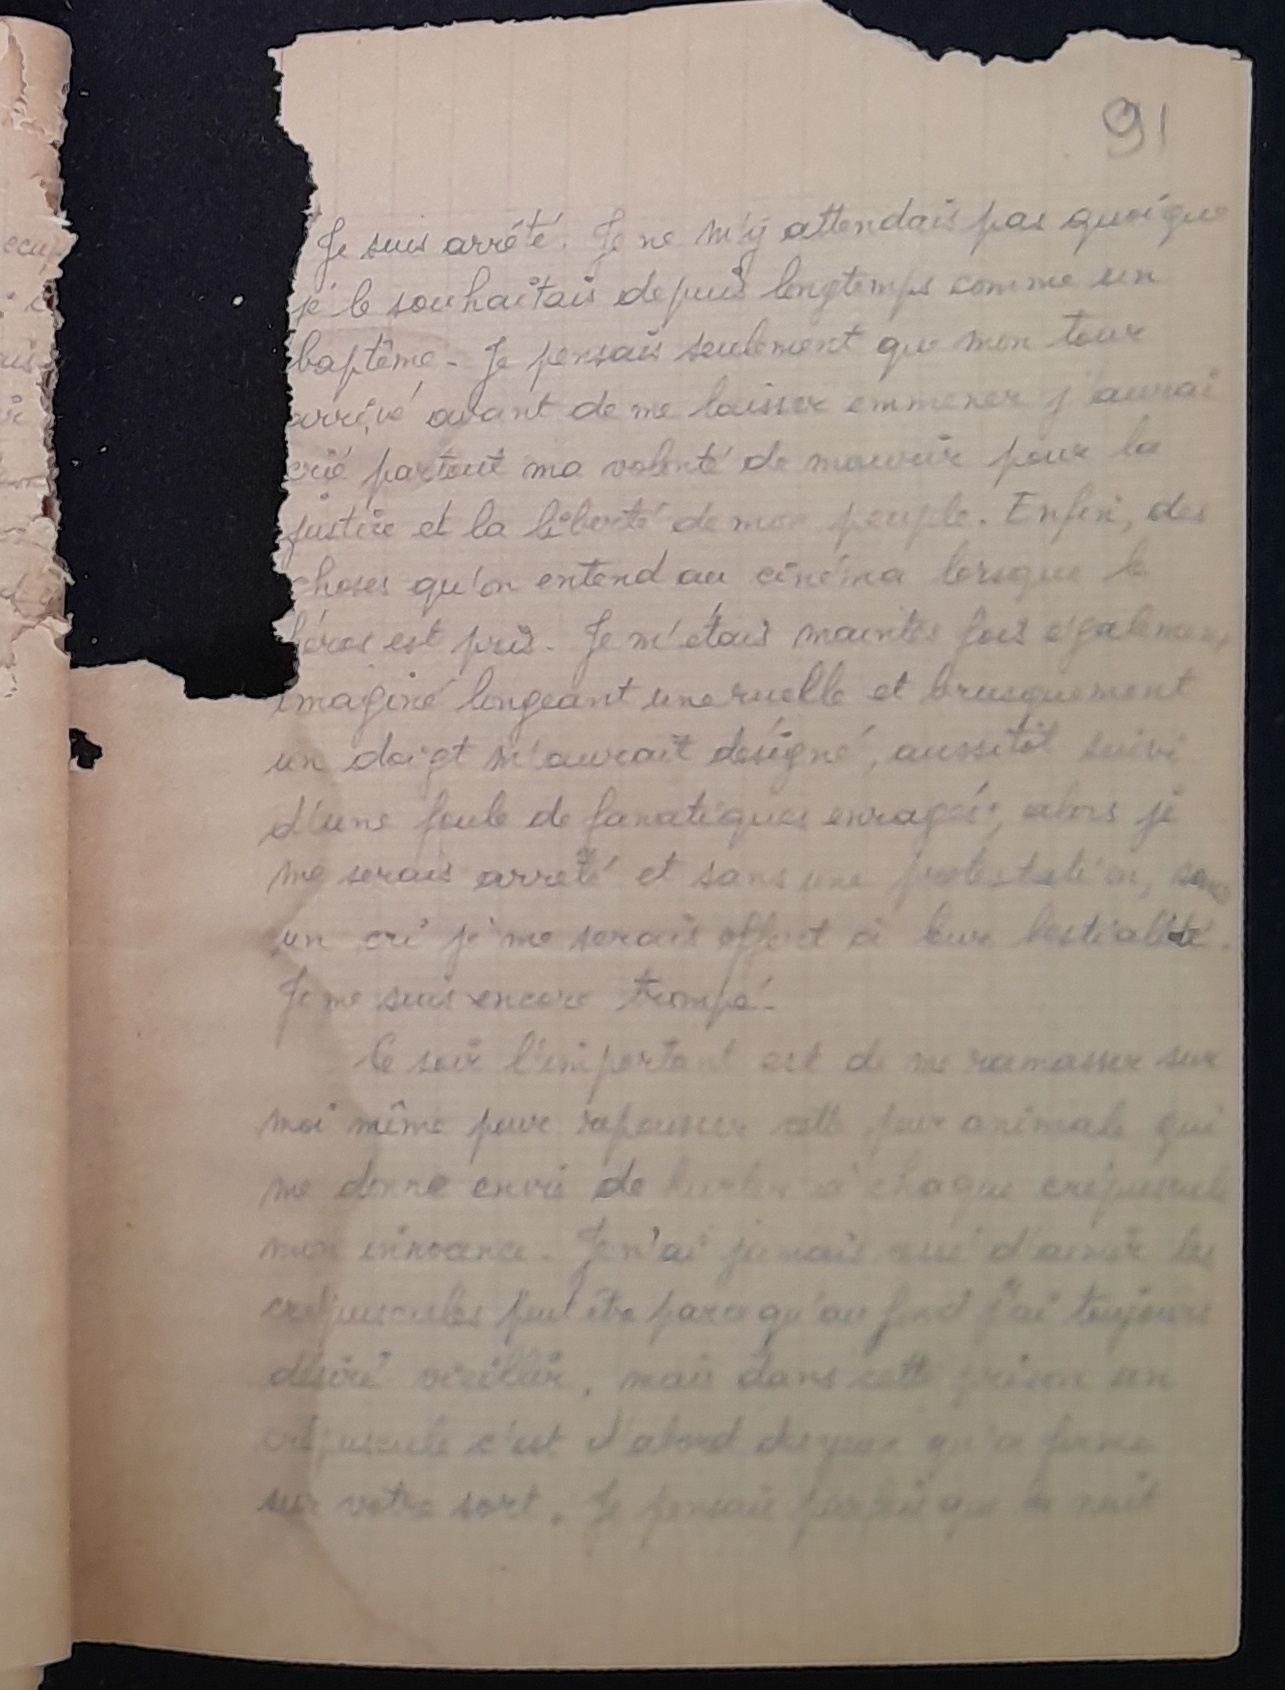 91
Je suis arrêté. Je ne m'y attendais pas quoique
je le souhaitais depuis longtemps comme un
baptême - Je pensais seulement que mon tour
arrivé avant de me laisser emmener j'aurai
crié partout ma volonté de mourir pour la
justice et la liberté de mon peuple. Enfin, des
choses qu'on entend au cinéma lorsque le
héros est pris. Je m'étais maintes fois également
imaginé longeant une ruelle et brusquement
un doigt m'aurait désigné, aussitôt suivi
d'une foule de fanatiques enragés; alors je
me serais arrêté et sans une protestation, sans
un cri je me serais offert à leur bestialité.
Je me suis encore trompé.
Ce soir l'important est de me ramasser sur
moi même pour repousser cette peur animale qui
me donne envie de hurler à chaque crépuscule
mon innocence. Je n'ai jamais d'aimer les
crépuscules peut être parce qu'au fond j'ai toujours
désiré vieillir, mais dans cette prison un
crépuscule c'est d'abord des yeux qu'on ferme
sur votre sort. Je pensais parfois que la nuit